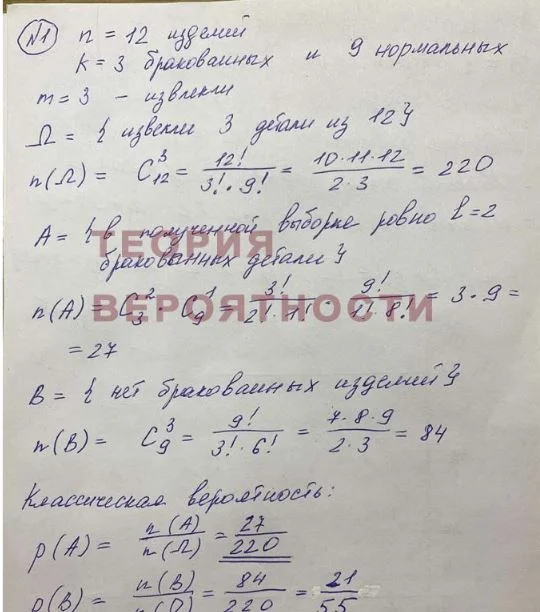 №1 n = 12 изделий
k = 3 бракованных и 9 нормальных
m = 3 - извлекли
Ω = { извекли 3 детали из 12 }
n(Ω) = C₁₂³ = 12! / (3! · 9!) = (10 · 11 · 12) / (2 · 3) = 220
A = { в полученной выборке ровно l = 2
бракованных детали }
ТЕОРИЯ
ВЕРОЯТНОСТИ
n(A) = C₃² · C₉¹ = 3! / (2! · 1!) · 9! / (1! · 8!) = 3 · 9 =
= 27
B = { нет бракованных изделий }
n(B) = C₉³ = 9! / (3! · 6!) = (7 · 8 · 9) / (2 · 3) = 84
Классическая вероятность:
p(A) = n(A) / n(Ω) = 27 / 220
p(B) = n(B) / n(Ω) = 84 / 220 = 21 / 55